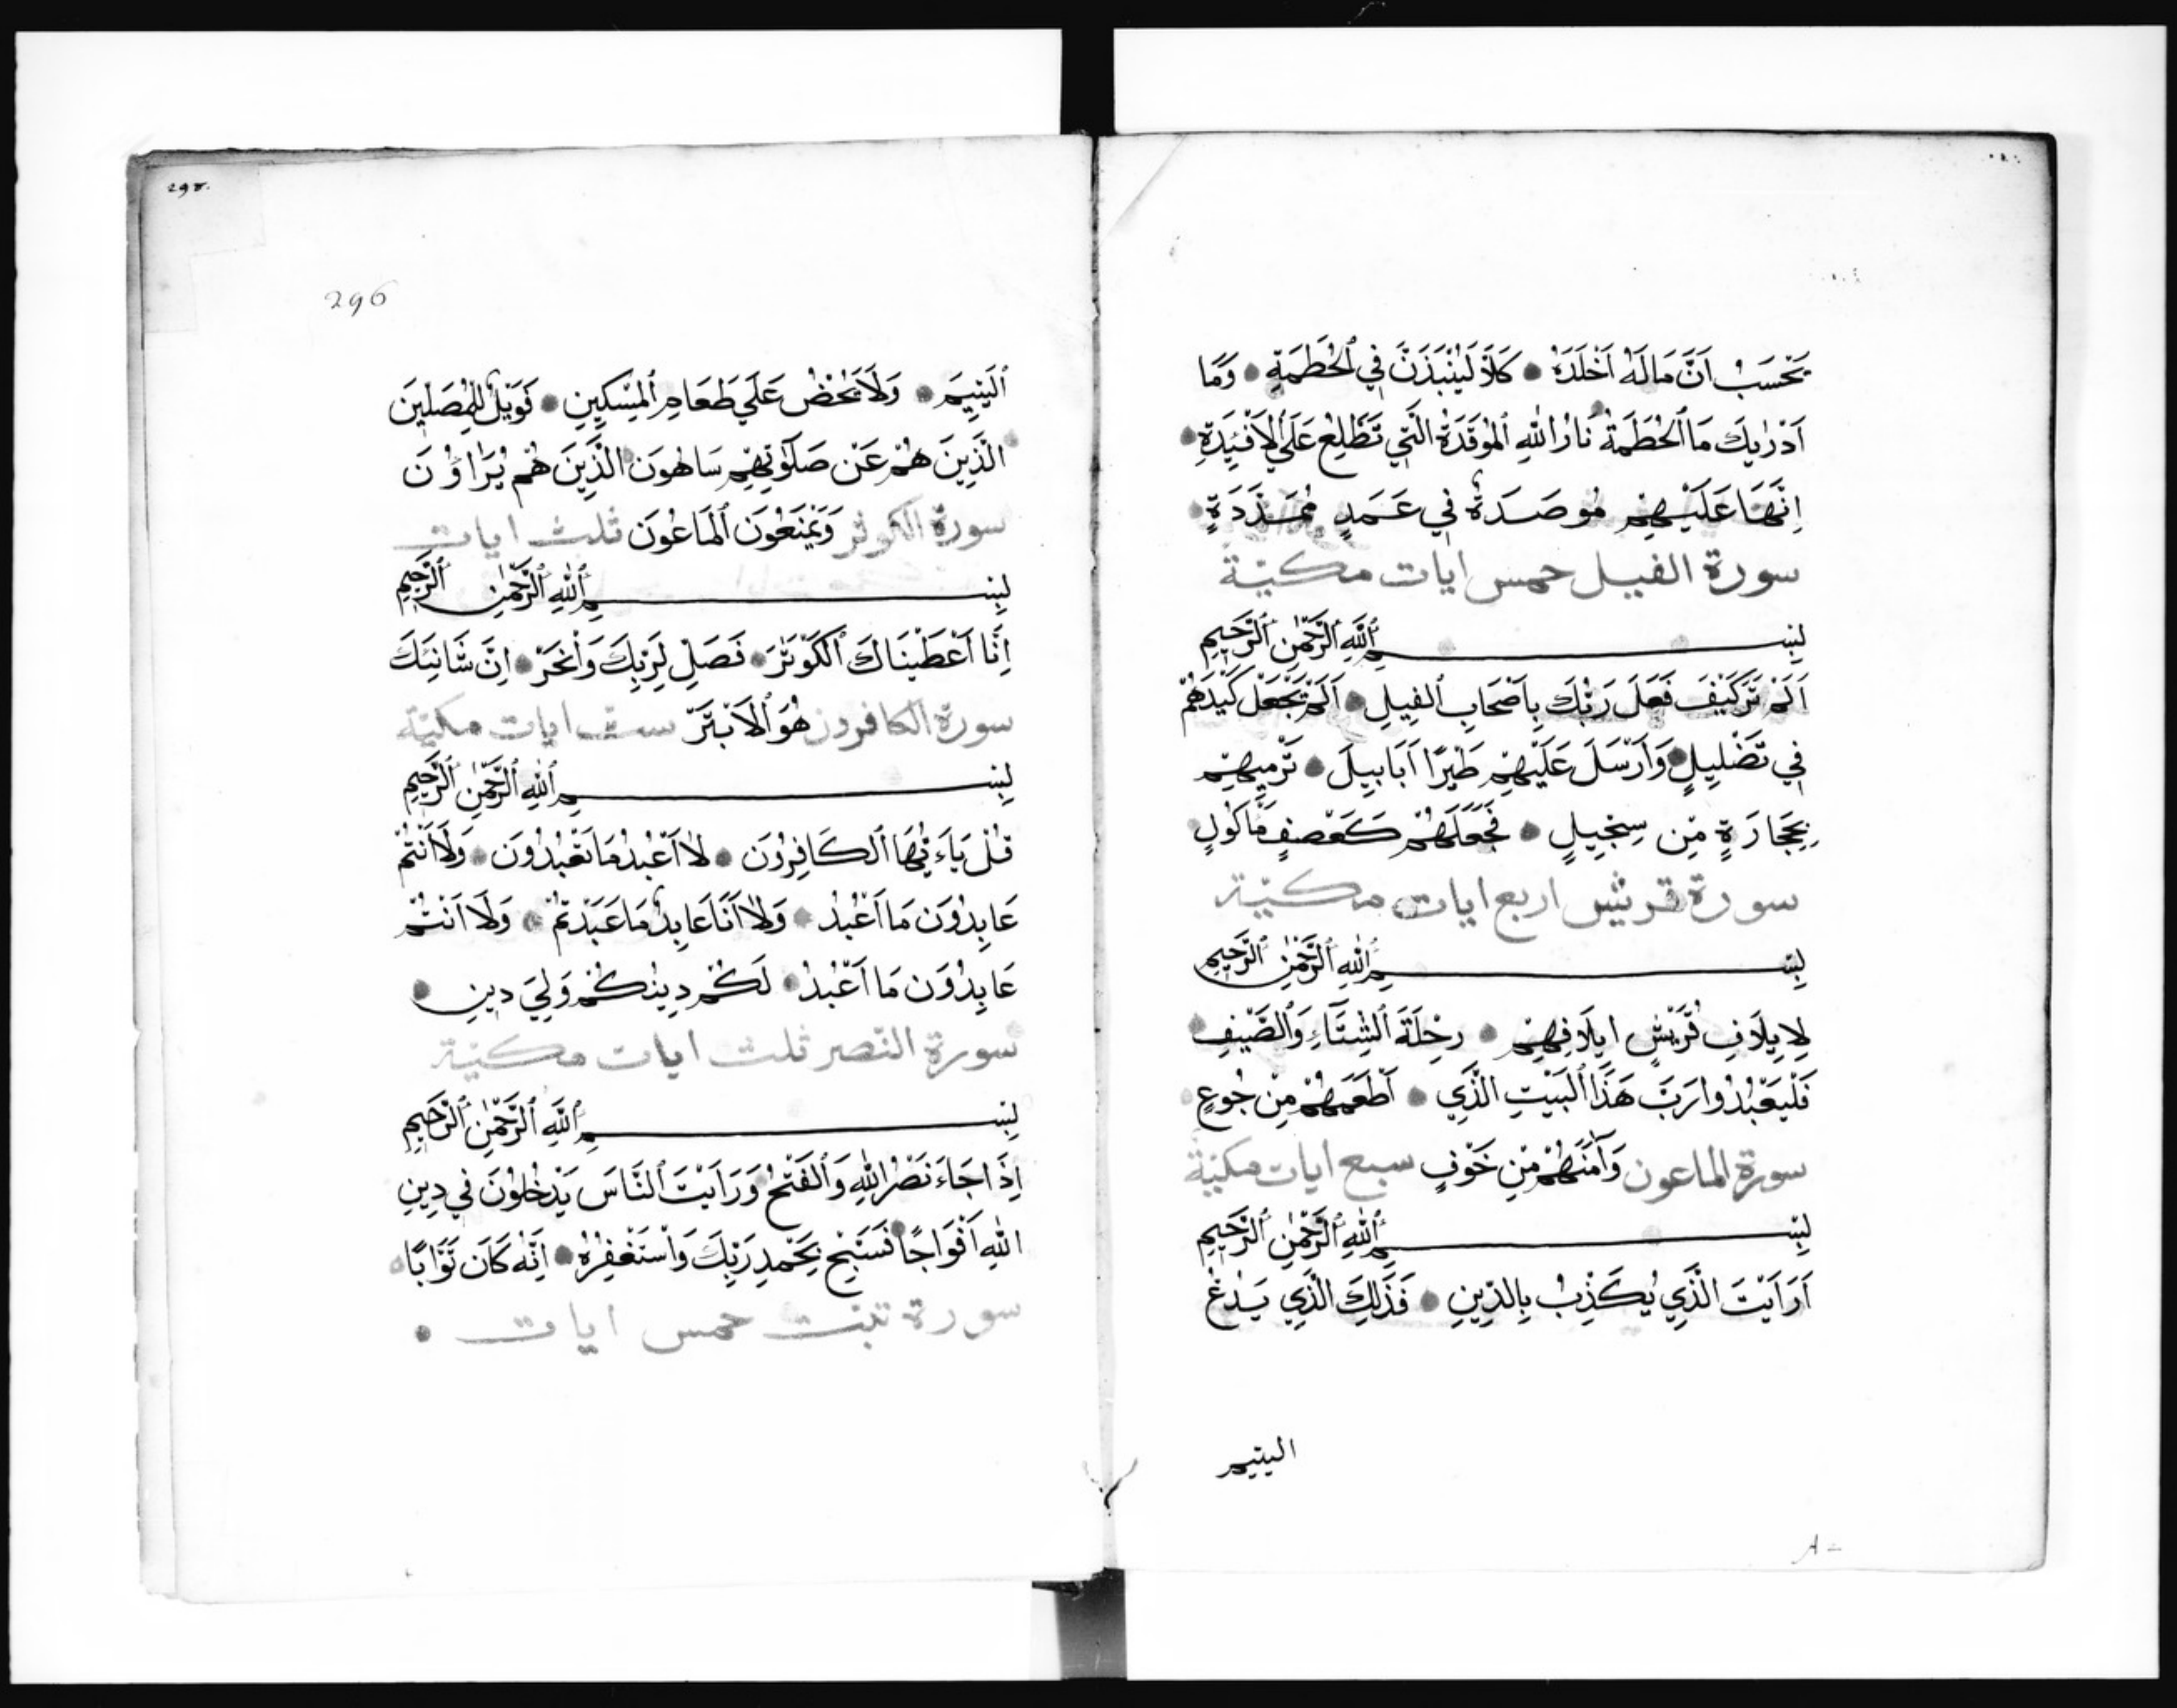 يَحْسَبُ اَنَّ مَالَهُ اَخْلَدَهُ كَلَّا لَيُنْبَذَنَّ فِي ٱلْحُطَمَةِ وَمَا
اَدْرٰيكَ مَا ٱلْحُطَمَةُ نَارُ اللّٰهِ ٱلْمُوقَدَةُ الَّتِي تَطَّلِعُ عَلَى ٱلْاَفْئِدَةِ
اِنَّهَا عَلَيْهِمْ مُوصَدَةٌ فِي عَمَدٍ مُمَدَّدَةٍ
سورة الفيل خمس ايات مكيّة
بِسْمِ ٱللّٰهِ ٱلرَّحْمٰنِ ٱلرَّحِيمِ
اَلَمْ تَرَ كَيْفَ فَعَلَ رَبُّكَ بِاَصْحَابِ ٱلْفِيلِ اَلَمْ يَجْعَلْ كَيْدَهُمْ
فِي تَضْلِيلٍ وَاَرْسَلَ عَلَيْهِمْ طَيْرًا اَبَابِيلَ تَرْمِيهِمْ
بِحِجَارَةٍ مِّن سِجِّيلٍ فَجَعَلَهُمْ كَعَصْفٍ مَّاكُولٍ
سورة قريش اربع ايات مكيّة
بِسْمِ ٱللّٰهِ ٱلرَّحْمٰنِ ٱلرَّحِيمِ
لِاِيلَافِ قُرَيْشٍ ايلَافِهِمْ رِحْلَةَ ٱلشِّتَآءِ وَٱلصَّيْفِ
فَلْيَعْبُدُوا رَبَّ هَذَا ٱلْبَيْتِ الَّذِي اَطْعَمَهُمْ مِنْ جُوعٍ
سورة الماعون وَآمَنَهُمْ مِّنْ خَوْفٍ سبع ايات مكيّة
بِسْمِ ٱللّٰهِ ٱلرَّحْمٰنِ ٱلرَّحِيمِ
اَرَاَيْتَ الَّذِي يُكَذِّبُ بِالدِّينِ فَذَلِكَ الَّذِي يَدُعُّ
اليتيم
296
ٱلْيَتِيمَ وَلَا يَحُضُّ عَلَي طَعَامِ ٱلْمِسْكِينِ فَوَيْلٌ لِلْمُصَلِّينَ
الَّذِينَ هُمْ عَنْ صَلَوٰتِهِمْ سَاهُونَ الَّذِينَ هُمْ يُرَاؤُنَ
سورة الكوثر وَيَمْنَعُونَ ٱلْمَاعُونَ ثلث ايات
بِسْمِ ٱللّٰهِ ٱلرَّحْمٰنِ ٱلرَّحِيمِ
اِنَّا اَعْطَيْنَاكَ ٱلْكَوْثَرَ فَصَلِّ لِرَبِّكَ وَٱنْحَرْ اِنَّ شَانِئَكَ
سورة الكافرون هُوَ ٱلْاَبْتَرُ ست ايات مكيّة
بِسْمِ ٱللّٰهِ ٱلرَّحْمٰنِ ٱلرَّحِيمِ
قُلْ يَاءَيُّهَا ٱلْكَافِرُونَ لَا اَعْبُدُ مَا تَعْبُدُونَ وَلَا اَنْتُمْ
عَابِدُونَ مَا اَعْبُدُ وَلَا اَنَا عَابِدٌ مَا عَبَدْتُمْ وَلَا اَنْتُمْ
عَابِدُونَ مَا اَعْبُدُ لَكُمْ دِينُكُمْ وَلِيَ دِينِ
سورة النّصر ثلث ايات مكيّة
بِسْمِ ٱللّٰهِ ٱلرَّحْمٰنِ ٱلرَّحِيمِ
اِذَا جَاءَ نَصْرُ اللّٰهِ وَٱلْفَتْحُ وَرَاَيْتَ ٱلنَّاسَ يَدْخُلُونَ فِي دِينِ
اللّٰهِ اَفْوَاجًا فَسَبِّحْ بِحَمْدِ رَبِّكَ وَاسْتَغْفِرْهُ اِنَّهُ كَانَ تَوَّابًا
سورة تبّت خمس ايات